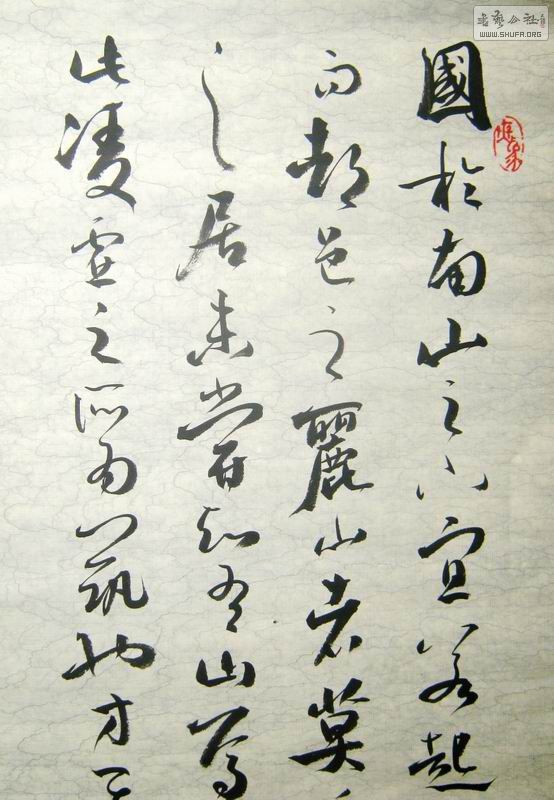 書藝公社
WWW.SHUFA.ORG
國於南山之下宜若起
而都邑之麗山者莫
之居未嘗知有山焉
此凌虛之所為築也方